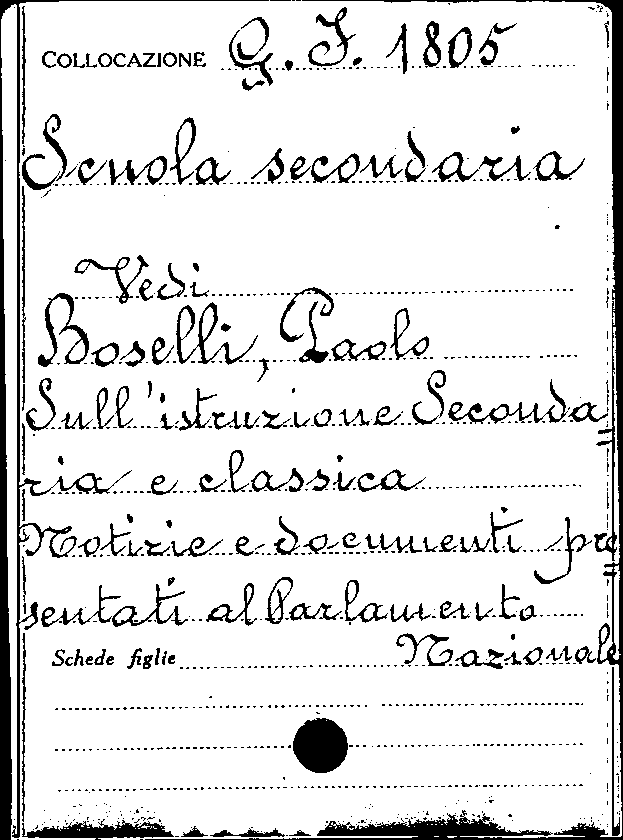 COLLOCAZIONE G. I. 1805
Scuola secondaria
Vedi
Boselli, Paolo
Sull'istruzione Seconda=
ria e classica
Notizie e documenti pre=
sentati al Parlamento
Schede figlie Nazionale